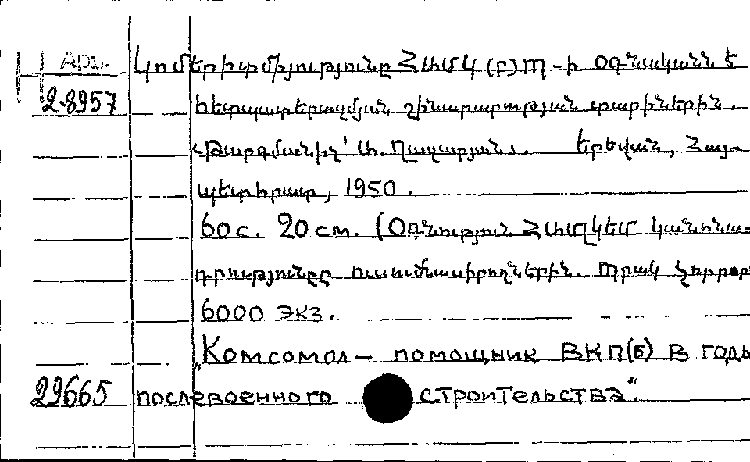 Арм. Կոմերիտմիությունը ՀամԿ(բ)Պ-ի օգնականն է
2-8957 հետպատերազմյան շինարարության տարիներին.
<Թարգմանիչ՝ Տ. Ղազարյան>. Երևան, Հայ-
պետհրատ, 1950.
60 с. 20 см. (Օգնություն ՀամԼԿԵՄ կանոնա-
դրությունը ուսումնասիրողներին. Պրակ չորրորդ
6000 экз.
„Комсомол — помощник ВКП(б) в годы
29665 послевоенного строительства".